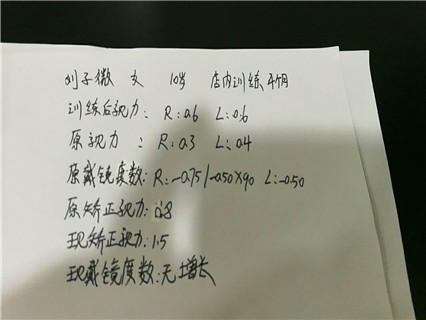 刘子微 女 10岁 店内训练4个月
训练后视力: R:0.6 L:0.6
原视力 : R:0.3 L:0.4
原戴镜度数: R:-0.75/-0.50×90 L:-0.50
原矫正视力: 0.8
现矫正视力: 1.5
现戴镜度数: 无增长